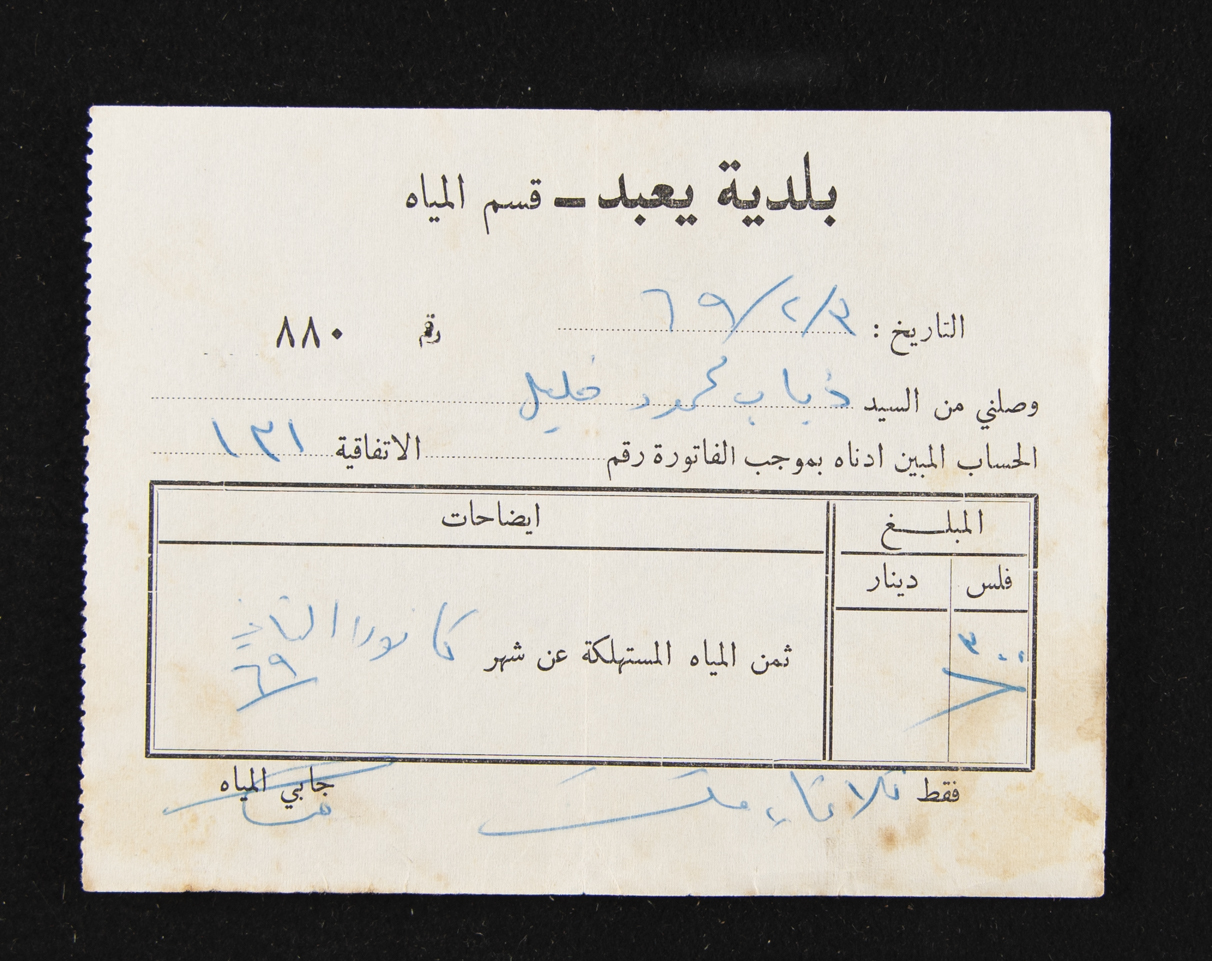 بلدية يعبد ـ قسم المياه
التاريخ : ٦٩/٢/٣
رقم ٨٨٠
وصلني من السيد ذياب محمود خليل
الحساب المبين ادناه بموجب الفاتورة رقم الاتفاقية ١٣١
المبلــغ ايضاحات
فلس دينار
٣٠٠
ثمن المياه المستهلكة عن شهر كانون الثاني
٦٩
فقط ثلاثماية فلس
جابي المياه